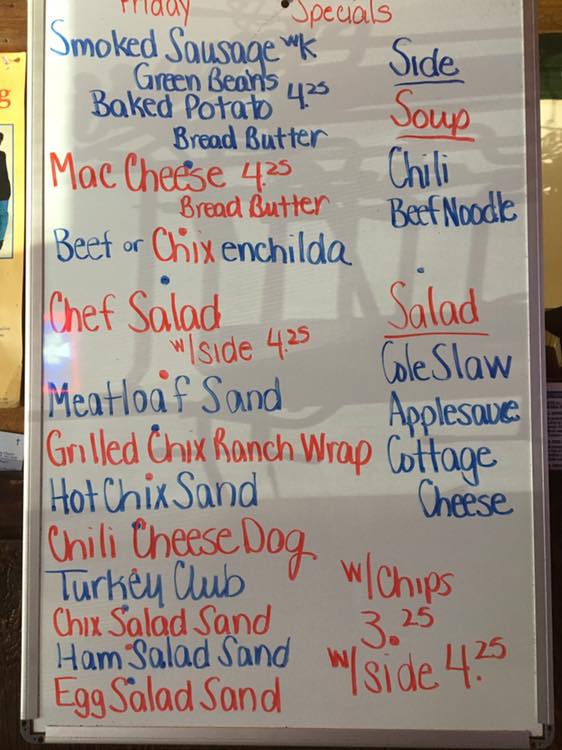 Friday Specials
Smoked Sausage w/k
Green Beans
Baked Potato 4.25
Bread Butter
Mac Cheese 4.25
Bread Butter
Beef or Chix enchilda
Chef Salad
w/side 4.25
Meatloaf Sand
Grilled Chix Ranch Wrap
Hot Chix Sand
Chili Cheese Dog
Turkey Club
Chix Salad Sand
Ham Salad Sand
Egg Salad Sand
Side
Soup
Chili
Beef Noodle
Salad
Cole Slaw
Applesauce
Cottage
Cheese
w/Chips
3.25
w/side 4.25